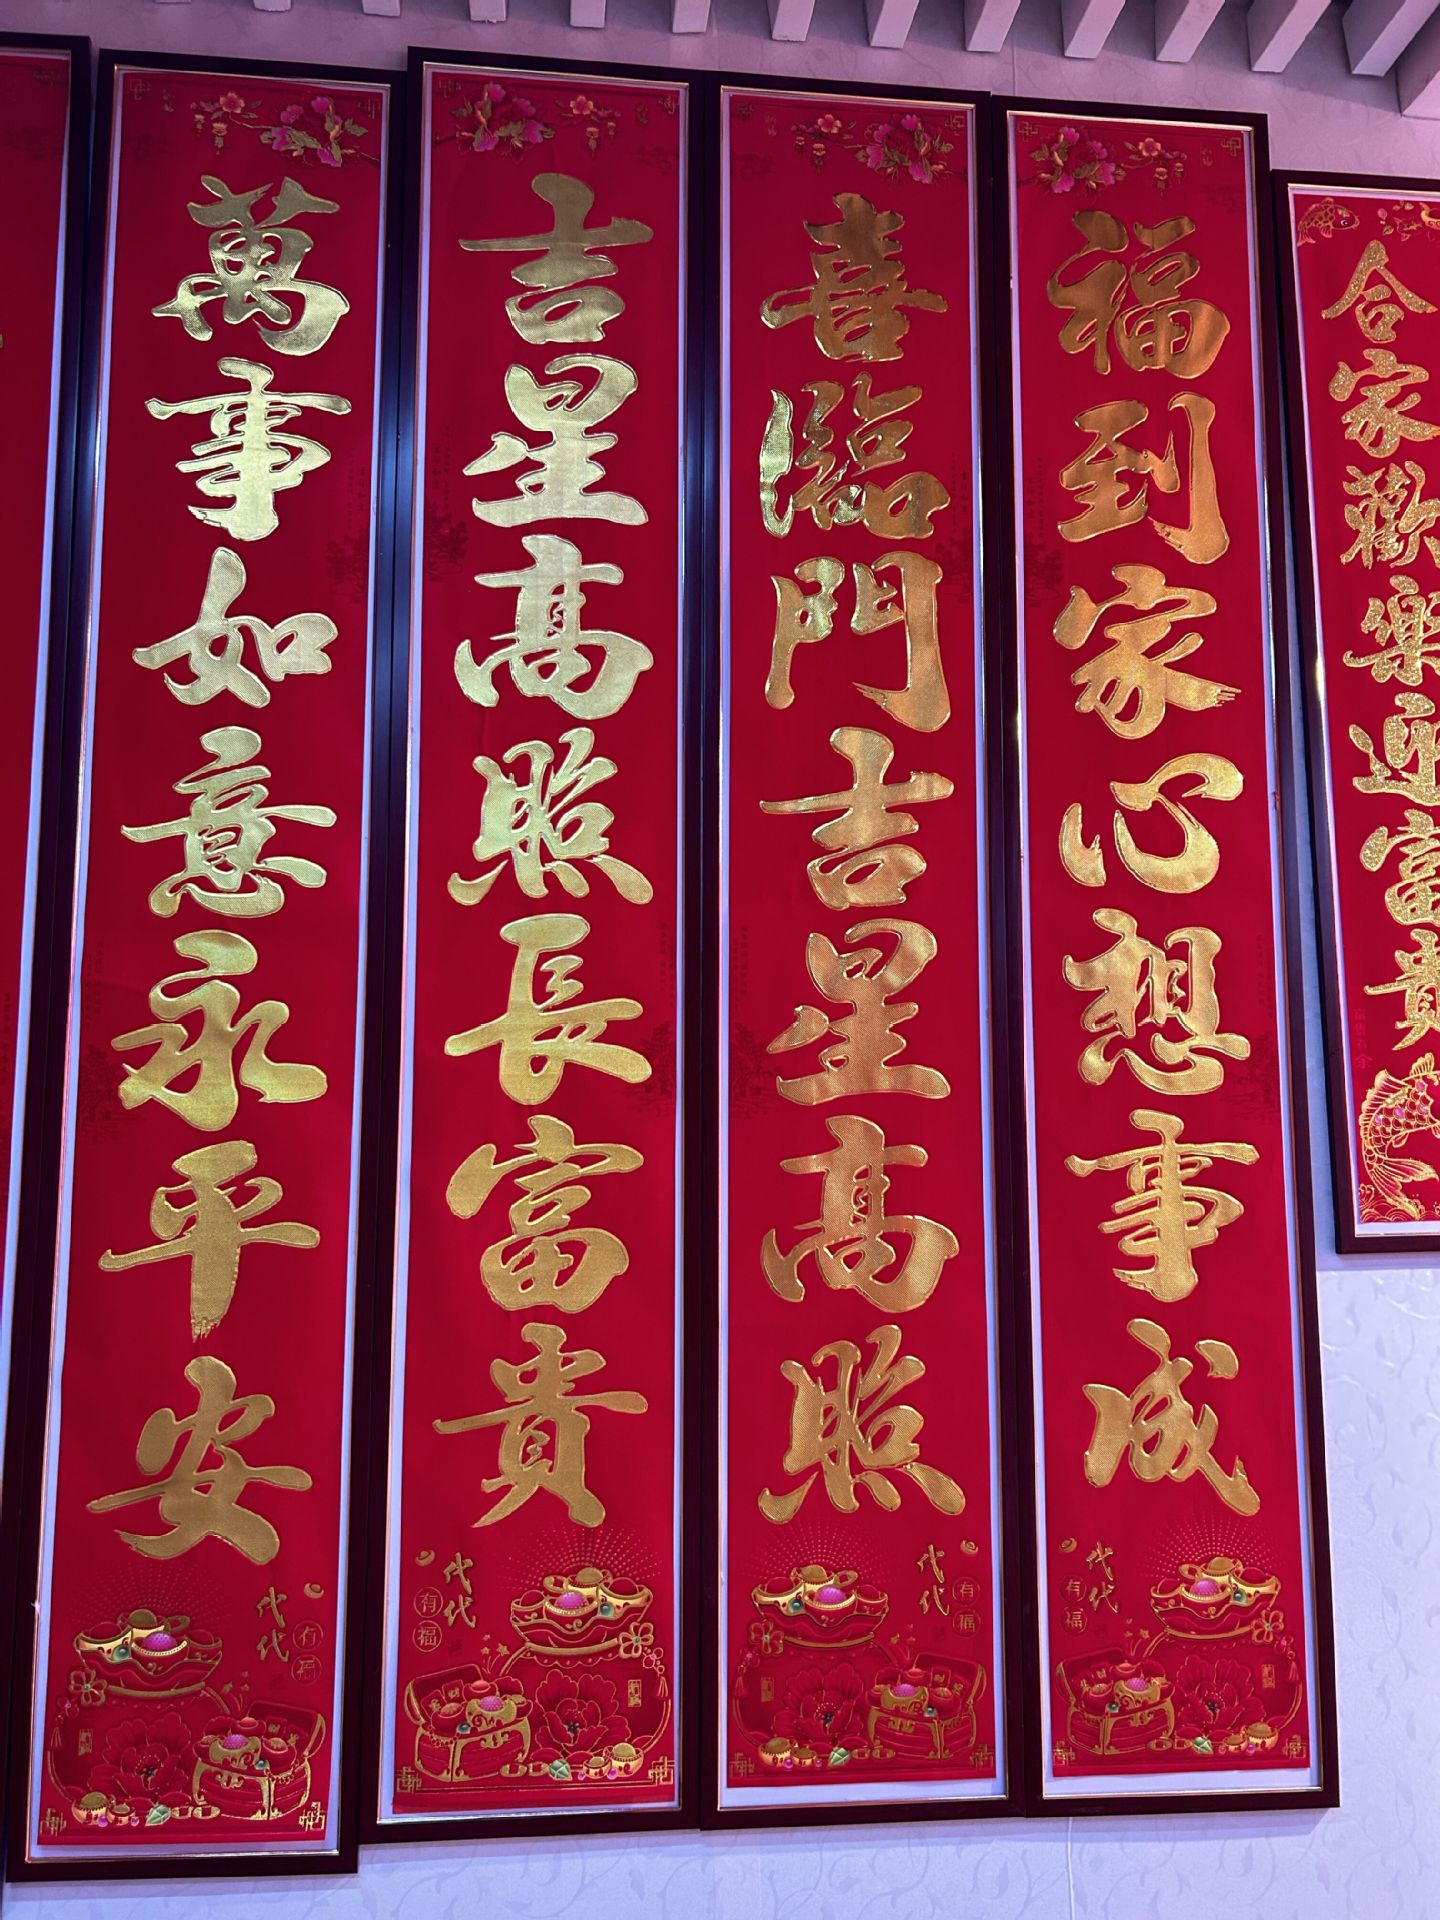 萬事如意永平安
代代
有福
吉星高照長富貴
代代
有福
喜臨門吉星高照
代代
有福
福到家心想事成
代代
有福
合家歡樂迎富貴